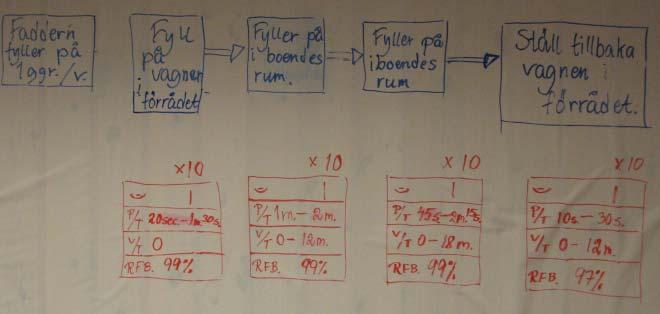 Faddern
fyller på
1ggr./v.
Fyll
på
vagnen
i förrådet
Fyller på
i boendes
rum.
Fyller på
i boendes
rum
Ställ tillbaka
vagnen i
förrådet.
x10
1
P/T 20sec-1m30s.
V/T 0
RFB. 99%
x10
1
P/T 1m-2m.
V/T 0-12m.
RFB. 99%
x10
1
P/T 45s-2m15s.
V/T 0-18m.
RFB. 99%
x10
1
P/T 10s-30s.
V/T 0-12m.
RFB. 97%